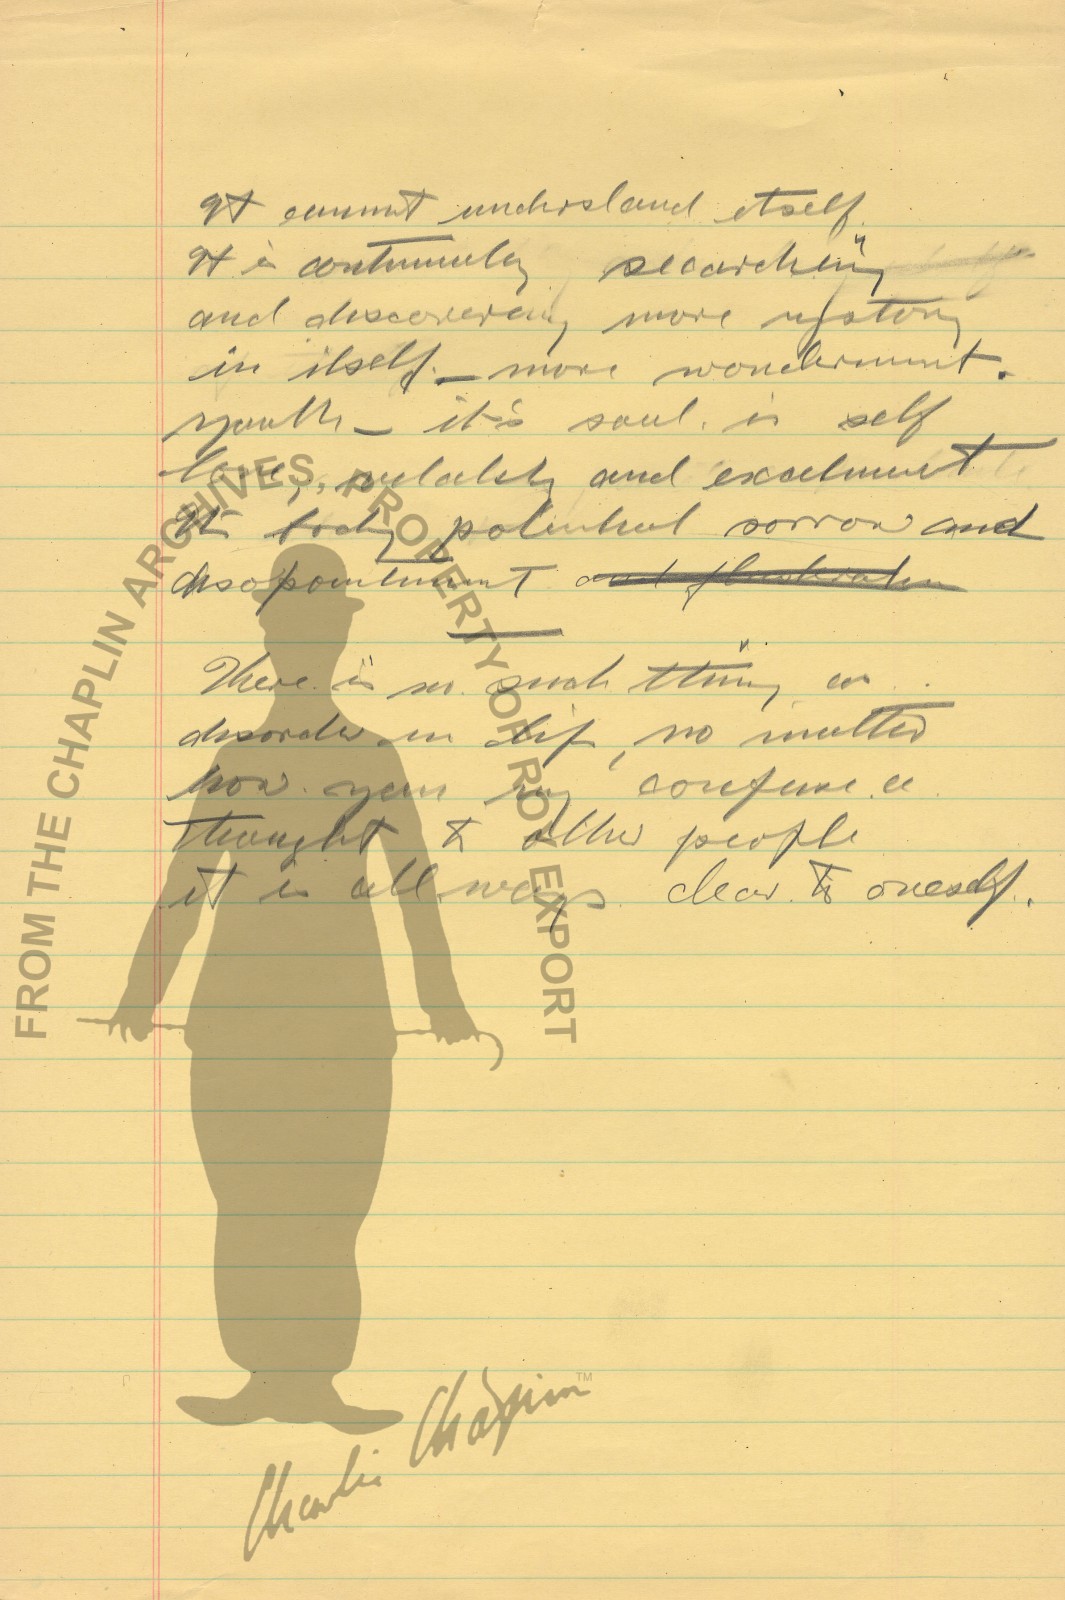 It cannot understand itself.
It is continually searching
and discovering more mystory
in itself. — more wonderment.
Youth — it's soul. is self
love, and excitment
It's body potential sorrow and
disapointment and frustration
There is no such thing as
disorder in life, no matter
how your may confuse a
thought to other people
it is allways clear to oneself.
FROM THE CHAPLIN ARCHIVES, PROPERTY OF ROY EXPORT
Charlie Chaplin™